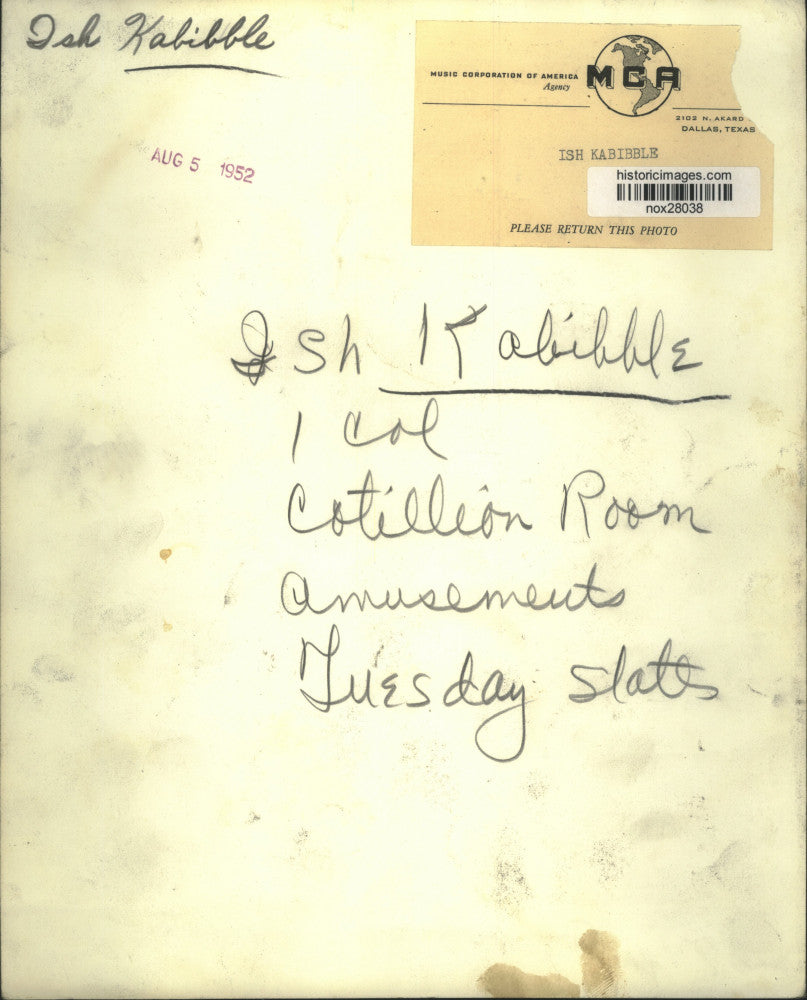 Ish Kabibble
MUSIC CORPORATION OF AMERICA
Agency
MCA
2102 N. AKARD
DALLAS, TEXAS
AUG 5 1952
ISH KABIBBLE
historicimages.com
nox28038
PLEASE RETURN THIS PHOTO
Ish Kabibble
1 Col
Cotillion Room
Amusements
Tuesday